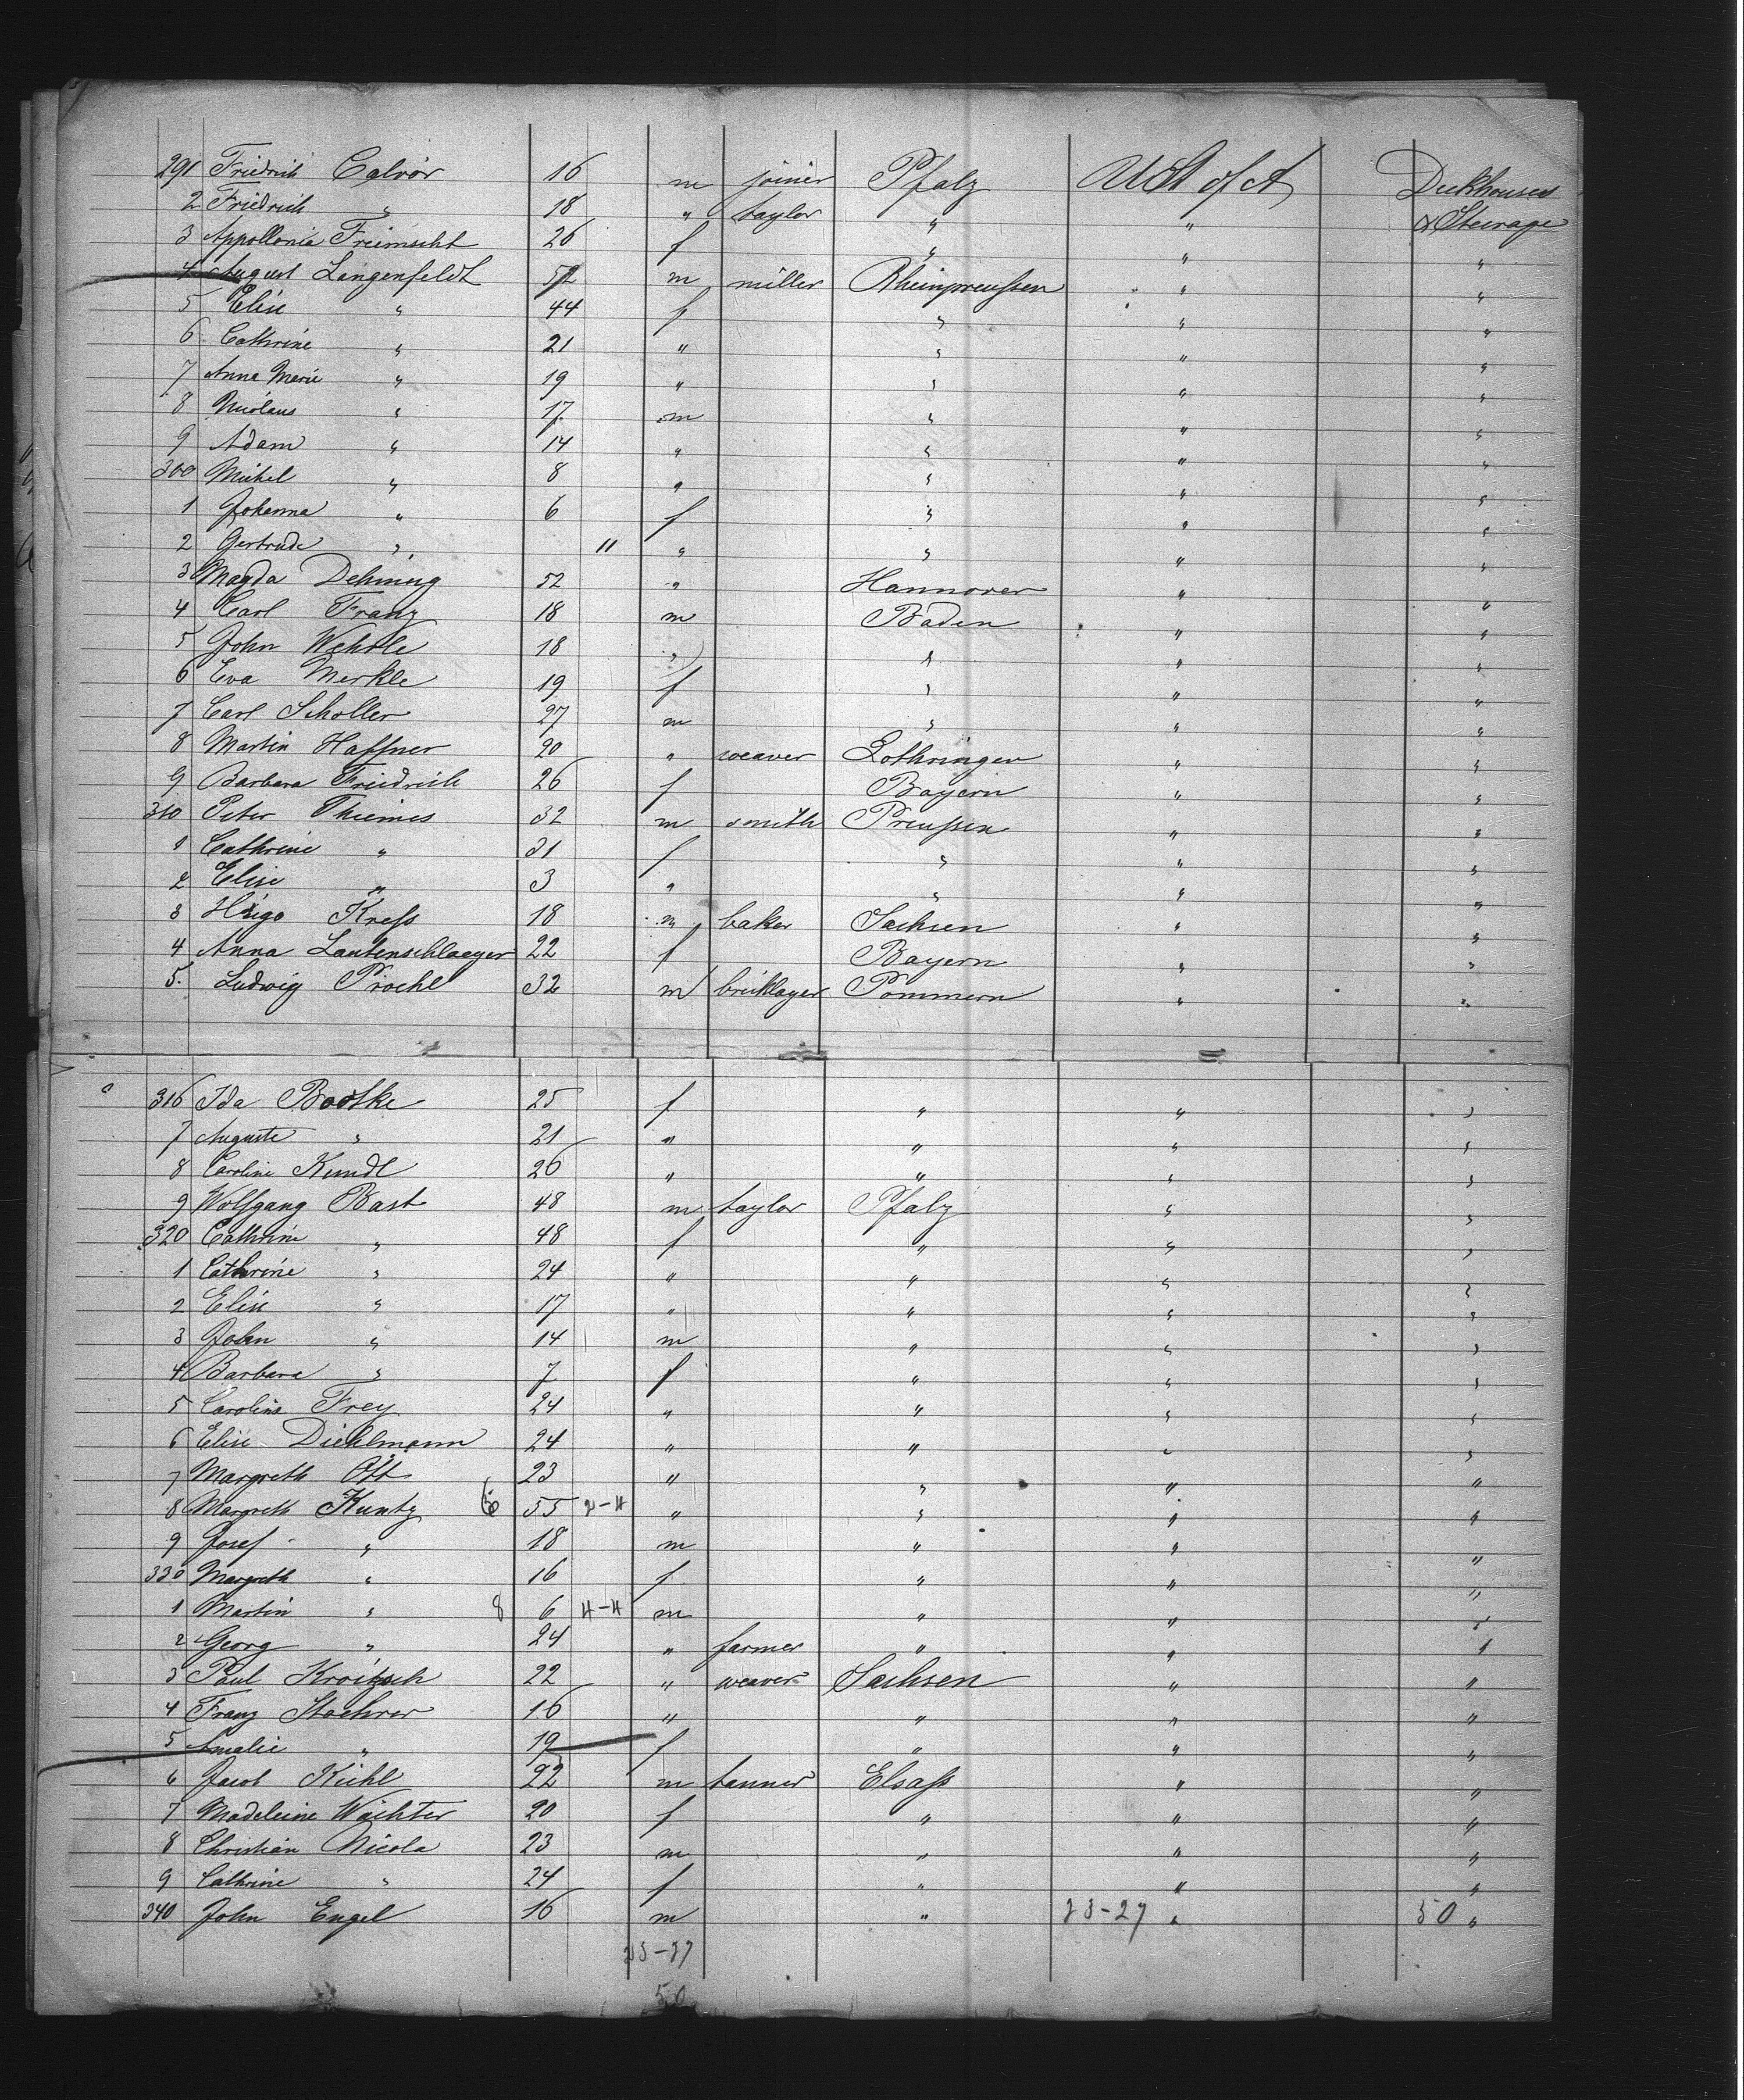 291 Friedrich Calvör 16 m joiner Pfalz USt of A Deckhouses
2 Friedrich " 18 " taylor " " & Steerage
3 Appollonia Freimscht 26 f " " "
4 August Langenfeldt 52 m miller Rheinpreußen " "
5 Elise " 44 f " " "
6 Cathrine " 21 " " " "
7 Anna Marie " 19 " " " "
8 Nicolaus " 17 m " " "
9 Adam " 14 " " " "
300 Michel " 8 " " " "
1 Johanna " 6 f " " "
2 Gertrude " 11 " " " "
3 Magda Dehning 52 " Hannover " "
4 Carl Franz 18 m Baden " "
5 John Wehrle 18 " " " "
6 Eva Merkle 19 f " " "
7 Carl Scholler 27 m " " "
8 Martin Haffner 20 " weaver Lothringen " "
9 Barbara Friedrich 26 f Bayern " "
310 Peter Thiemes 32 m smith Preußen " "
1 Cathrine " 31 f " " "
2 Elise " 3 " " " "
3 Hugo Kreß 18 m baker Sachsen " "
4 Anna Lautenschlaeger 22 f Bayern " "
5. Ludwig Proehl 32 m bricklayer Pommern " "
316 Ida Bootke 25 f " " "
7 Auguste " 21 " " " "
8 Caroline Kundt 26 " " " "
9 Wolfgang Bast 48 m taylor Pfalz " "
320 Cathrine " 48 f " " "
1 Cathrine " 24 " " " "
2 Elise " 17 " " " "
3 John " 14 m " " "
4 Barbara " 7 f " " "
5 Caroline Frey 24 " " " "
6 Elise Diehlmann 24 " " " "
7 Margreth Ott 23 " " " "
8 Margreth Kuntz 6 55 " " " "
9 Josef " 18 m " " "
330 Margreth " 16 f " " "
1 Martin " 8 6 4-4 m " " "
2 Georg " 24 " farmer " " "
3 Paul Kroitzsch 22 " weaver Sachsen " "
4 Franz Stoehrer 16 " " " "
5 Amalie " 19 f " " "
6 Jacob Kiehl 22 m tanner Elsaß " "
7 Madeleine Wächter 20 f " " "
8 Christian Nicola 23 m " " "
9 Cathrine " 24 f " " "
340 John Engel 16 m " 23-27 " 50 "
23-27
50